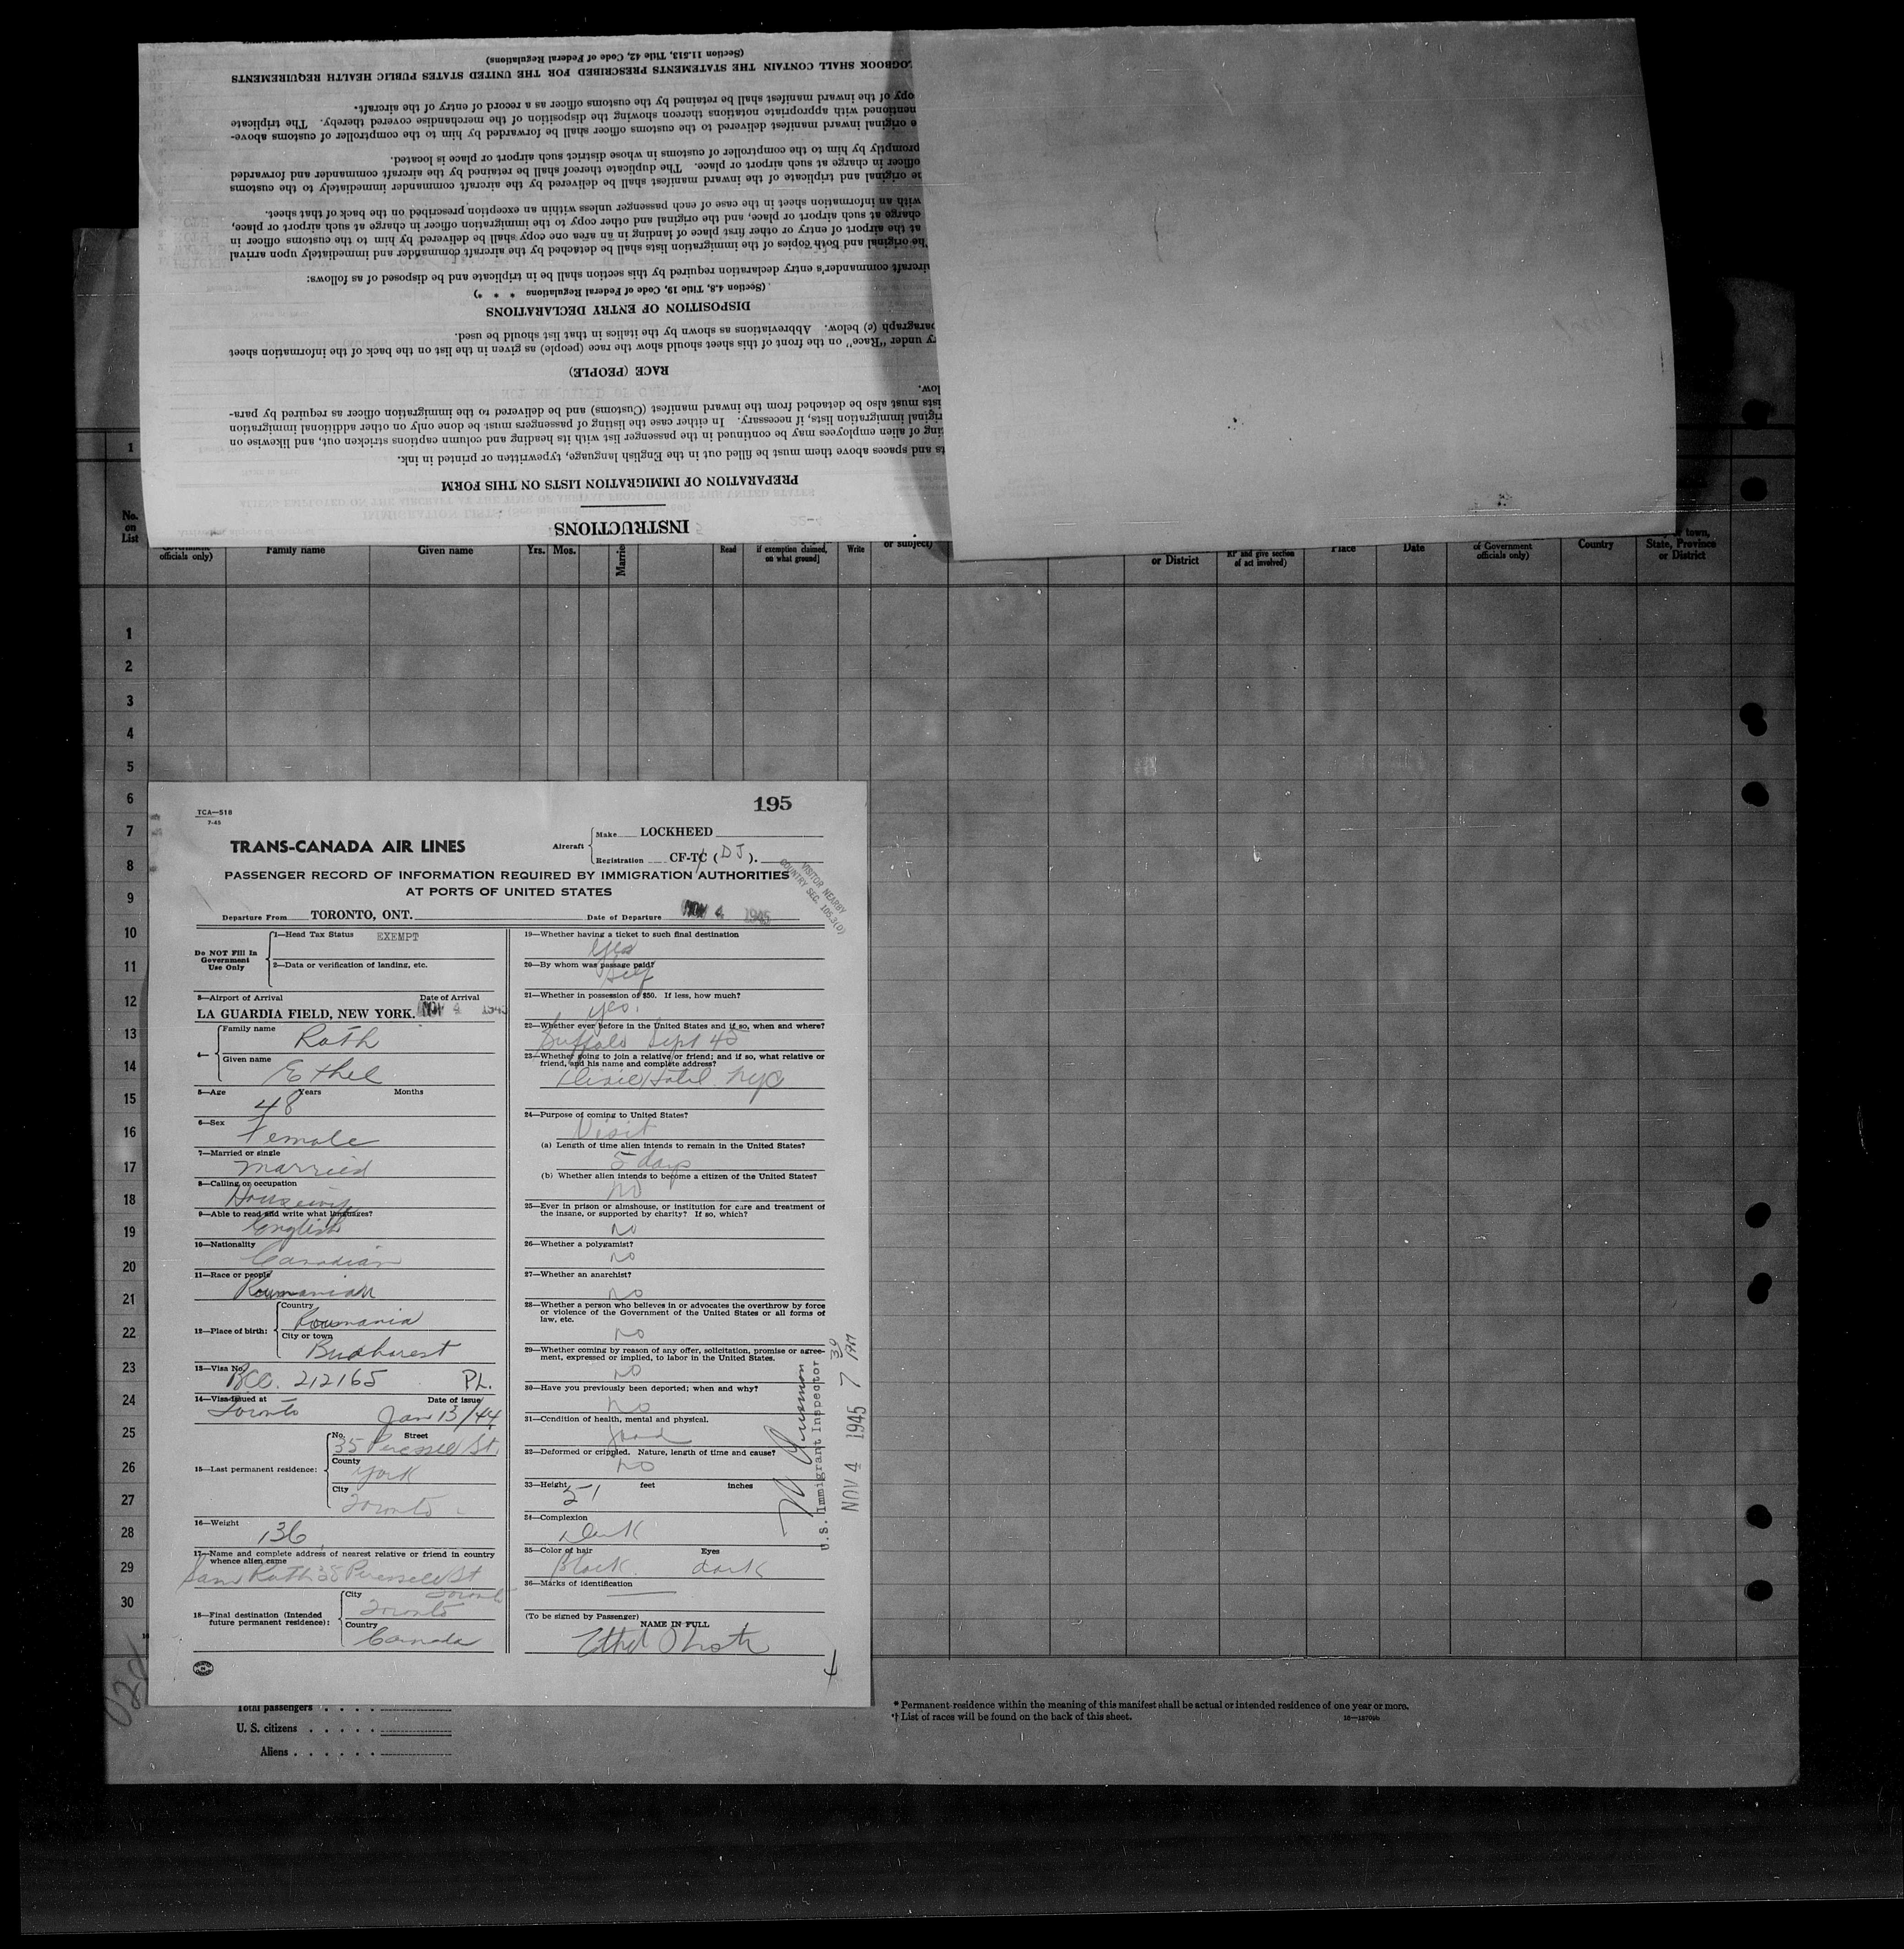 INSTRUCTIONS
PREPARATION OF IMMIGRATION LISTS ON THIS FORM
and spaces above them must be filled out in the English language, typewritten or printed in ink.
of alien employees may be continued in the passenger list with its heading and column captions stricken out, and likewise on
immigration lists, if necessary. In either case the listing of passengers must be done only on other additional immigration
must also be detached from the inward manifest (Customs) and be delivered to the immigration officer as required by para-
RACE (PEOPLE)
under "Race" on the front of this sheet should show the race (people) as given in the list on the back of the information sheet
paragraph (c) below. Abbreviations as shown by the italics in that list should be used.
DISPOSITION OF ENTRY DECLARATIONS
(Section 4.8, Title 19, Code of Federal Regulations * * *)
aircraft commander's entry declaration required by this section shall be in triplicate and be disposed of as follows:
The original and both copies of the immigration lists shall be detached by the aircraft commander and immediately upon arrival
at the airport of entry or other first place of landing in an area one copy shall be delivered by him to the customs officer in
charge at such airport or place, and the original and other copy to the immigration officer in charge at such airport or place,
with an information sheet in the case of each passenger unless within an exception prescribed on the back of that sheet.
original and triplicate of the inward manifest shall be delivered by the aircraft commander immediately to the customs
officer in charge at such airport or place. The duplicate thereof shall be retained by the aircraft commander and forwarded
promptly by him to the comptroller of customs in whose district such airport or place is located.
original inward manifest delivered to the customs officer shall be forwarded by him to the comptroller of customs above-
mentioned with appropriate notations thereon showing the disposition of the merchandise covered thereby. The triplicate
copy of the inward manifest shall be retained by the customs officer as a record of entry of the aircraft.
LOGBOOK SHALL CONTAIN THE STATEMENTS PRESCRIBED FOR THE UNITED STATES PUBLIC HEALTH REQUIREMENTS
(Section 11.513, Title 42, Code of Federal Regulations)
1
No. on List
officials only)
Family name
Given name
Yrs. Mos.
Read
if exemption claimed, on what ground]
Write
or subject)
or District
and give section of act involved)
Place
Date
of Government officials only)
Country
town, State, Province or District
1
2
3
4
5
6
7
8
9
10
11
12
13
14
15
16
17
18
19
20
21
22
23
24
25
26
27
28
29
30
195
TCA—518
7-45
TRANS-CANADA AIR LINES
Aircraft
Make LOCKHEED
Registration CF-TC (DJ).
VISITOR NEARBY
COUNTRY SEC. 105.3(D)
PASSENGER RECORD OF INFORMATION REQUIRED BY IMMIGRATION AUTHORITIES
AT PORTS OF UNITED STATES
Departure From TORONTO, ONT. Date of Departure NOV 4 1945
Do NOT Fill In Government Use Only
1—Head Tax Status EXEMPT
2—Data or verification of landing, etc.
3—Airport of Arrival Date of Arrival
LA GUARDIA FIELD, NEW YORK. NOV 4 1945
4— Family name Roth
Given name Ethel
5—Age Years Months
48
6—Sex
Female
7—Married or single
Married
8—Calling or occupation
Housewife
9—Able to read and write what languages?
English
10—Nationality
Canadian
11—Race or people
Roumanian
12—Place of birth: Country
Roumania
City or town
Bucharest
13—Visa No.
BCC. 212165 PL.
14—Visa issued at Date of issue
Toronto Jan 13/44
15—Last permanent residence: No. Street
35 St.
County
York
City
Toronto
16—Weight
136
17—Name and complete address of nearest relative or friend in country
whence alien came
Sam Roth St
Toronto
18—Final destination (Intended
future permanent residence):
City
Toronto
Country
Canada
19—Whether having a ticket to such final destination
Yes
20—By whom was passage paid?
Self
21—Whether in possession of $50. If less, how much?
yes.
22—Whether ever before in the United States and if so, when and where?
Buffalo Sept 45
23—Whether going to join a relative or friend; and if so, what relative or
friend, and his name and complete address?
Dixie Hotel NYC
24—Purpose of coming to United States?
Visit
(a) Length of time alien intends to remain in the United States?
5 days
(b) Whether alien intends to become a citizen of the United States?
No
25—Ever in prison or almshouse, or institution for care and treatment of
the insane, or supported by charity? If so, which?
No
26—Whether a polygamist?
No
27—Whether an anarchist?
No
28—Whether a person who believes in or advocates the overthrow by force
or violence of the Government of the United States or all forms of
law, etc.
No
29—Whether coming by reason of any offer, solicitation, promise or agree-
ment, expressed or implied, to labor in the United States.
No
30—Have you previously been deported; when and why?
No
31—Condition of health, mental and physical.
good
32—Deformed or crippled. Nature, length of time and cause?
No
33—Height feet inches
5 1
34—Complexion
Dark
35—Color of hair Eyes
Black dark
36—Marks of identification
(To be signed by Passenger)
NAME IN FULL
Ethel Roth
U.S. Immigrant Inspector
NOV 4 1945
Total passengers
U. S. citizens
Aliens
* Permanent residence within the meaning of this manifest shall be actual or intended residence of one year or more.
† List of races will be found on the back of this sheet.